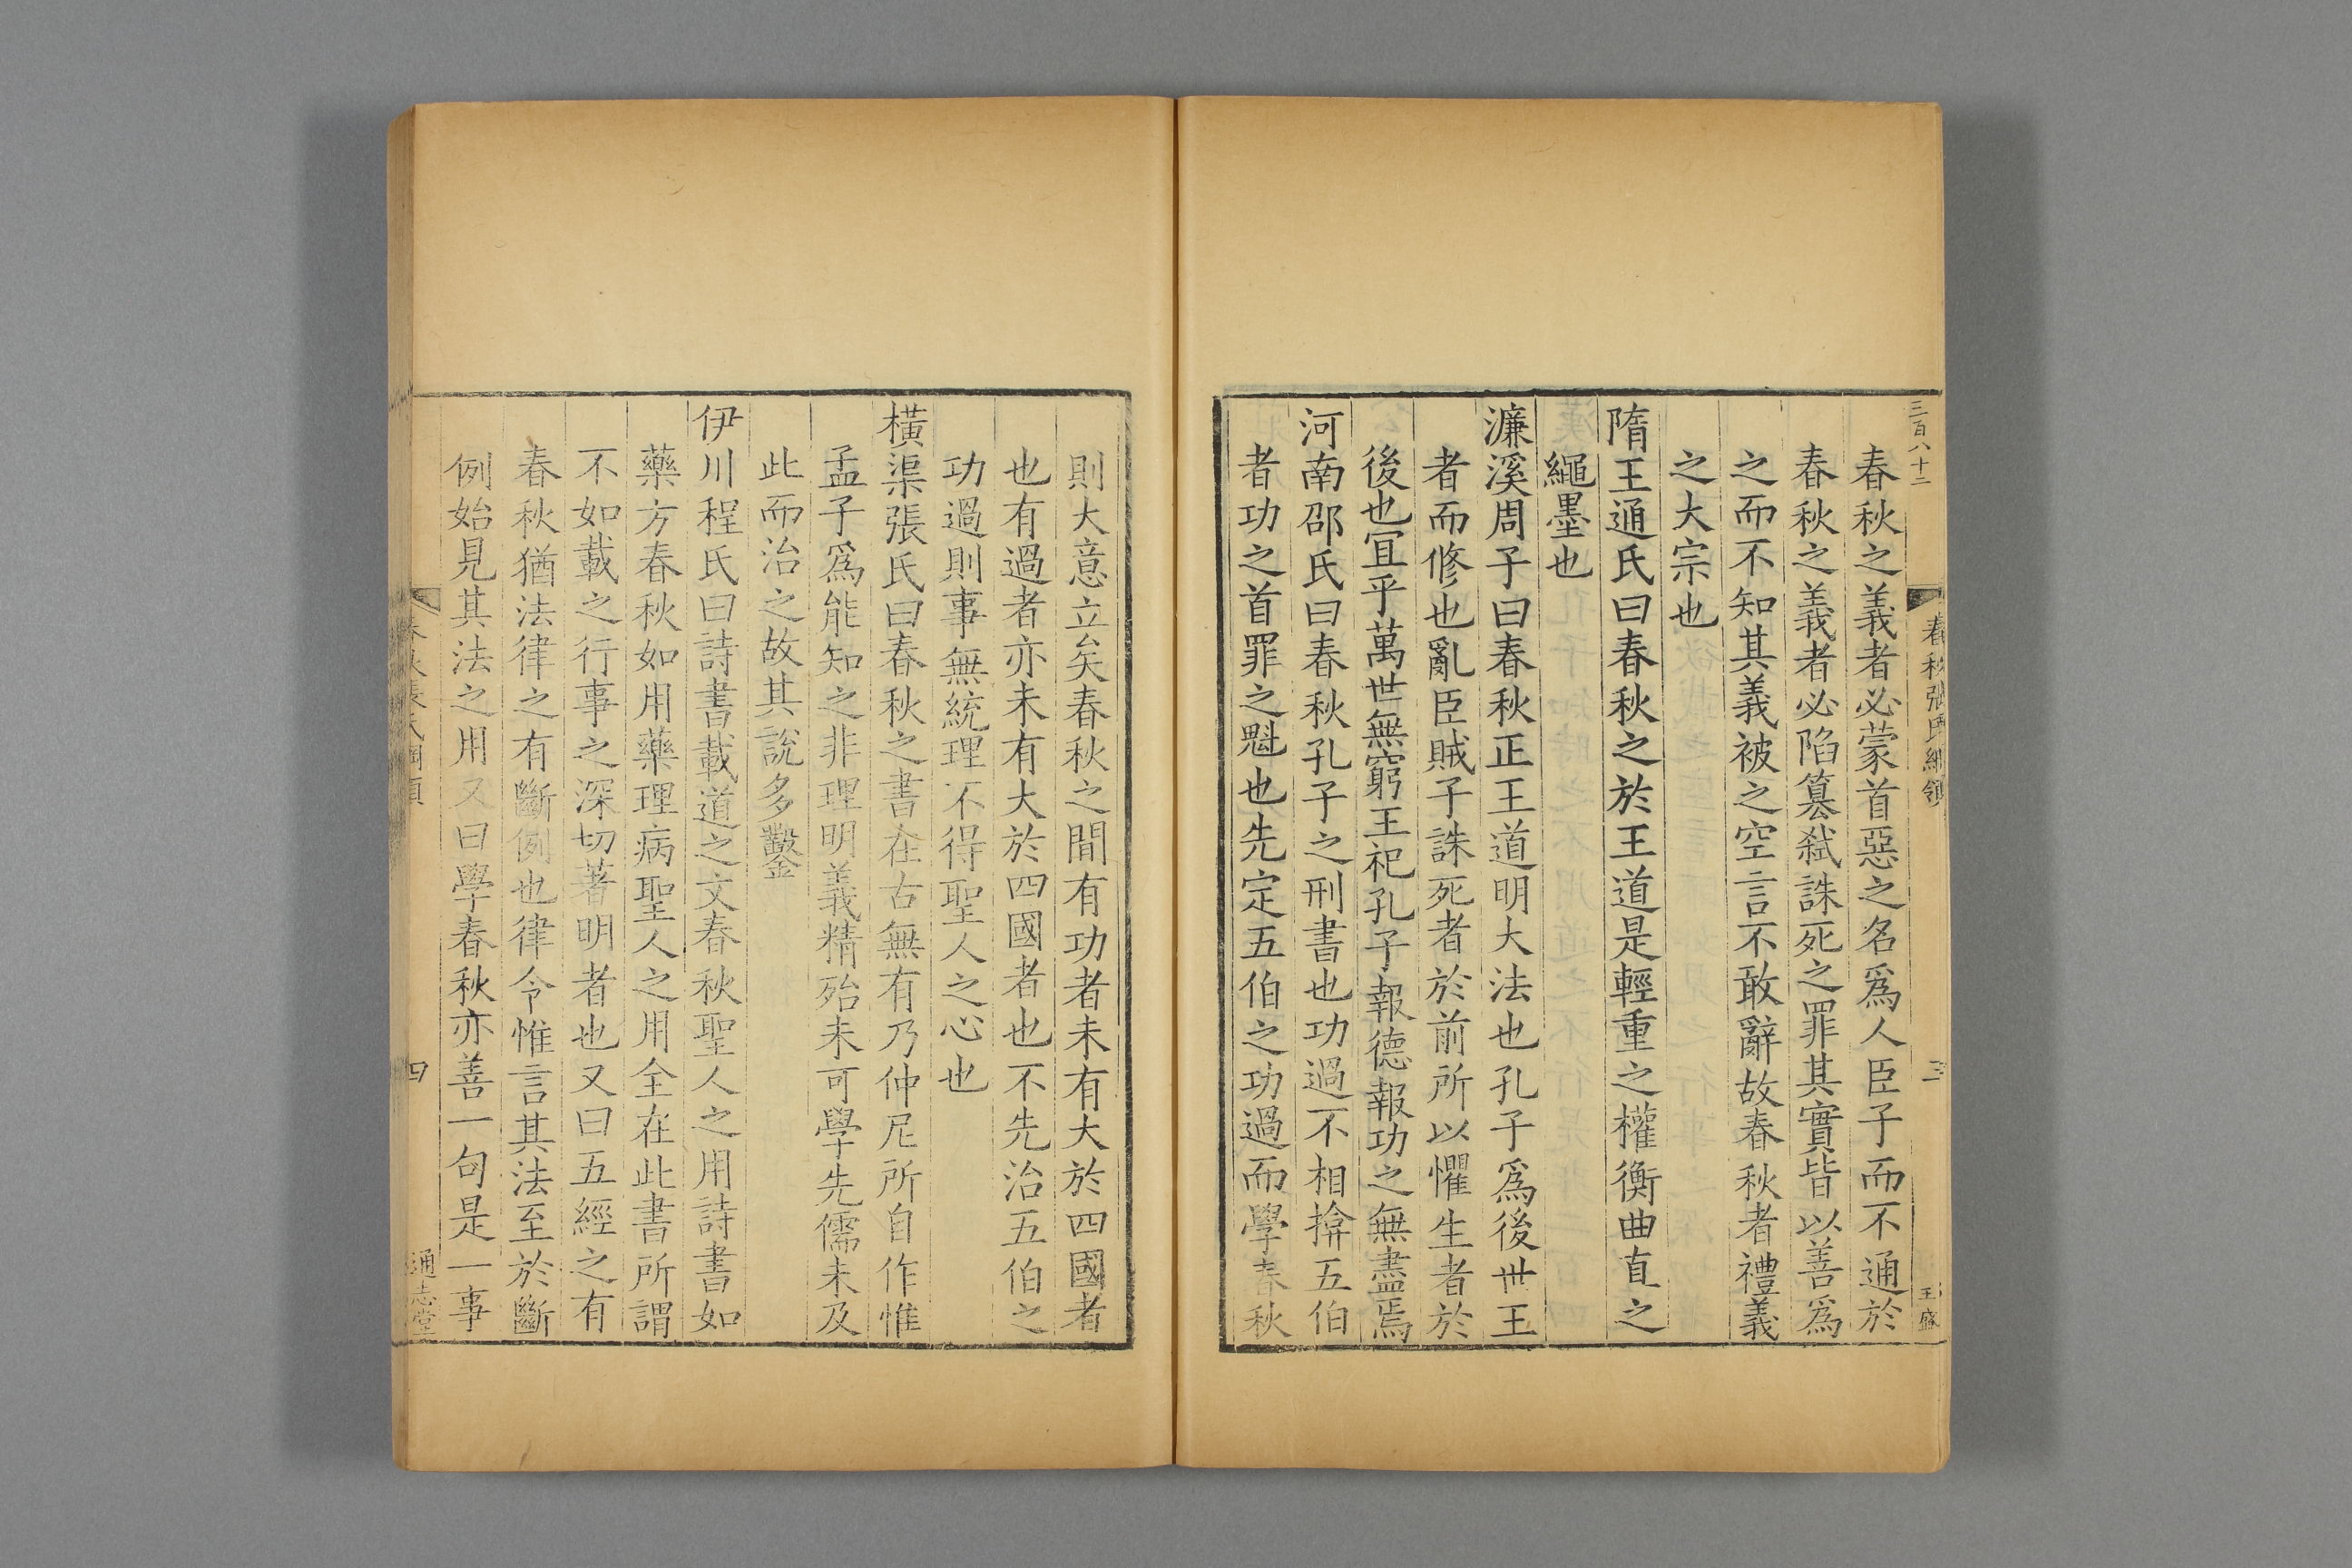 三百八十二
春秋張氏綱領
三
王盛
春秋之義者必蒙首惡之名爲人臣子而不通於
春秋之義者必陷篡弒誅死之罪其實皆以善爲
之而不知其義被之空言不敢辭故春秋者禮義
之大宗也
隋王通氏曰春秋之於王道是輕重之權衡曲直之
繩墨也
濂溪周子曰春秋正王道明大法也孔子爲後世王
者而修也亂臣賊子誅死者於前所以懼生者於
後也宜乎萬世無窮王祀孔子報德報功之無盡焉
河南邵氏曰春秋孔子之刑書也功過不相揜五伯
者功之首罪之魁也先定五伯之功過而學春秋
則大意立矣春秋之間有功者未有大於四國者
也有過者亦未有大於四國者也不先治五伯之
功過則事無統理不得聖人之心也
橫渠張氏曰春秋之書在古無有乃仲尼所自作惟
孟子爲能知之非理明義精殆未可學先儒未及
此而治之故其說多鑿
伊川程氏曰詩書載道之文春秋聖人之用詩書如
藥方春秋如用藥理病聖人之用全在此書所謂
不如載之行事之深切著明者也又曰五經之有
春秋猶法律之有斷例也律令惟言其法至於斷
例始見其法之用又曰學春秋亦善一句是一事
四
通志堂